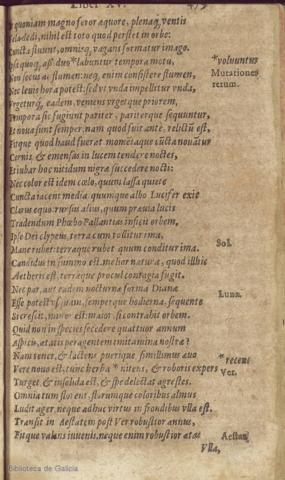 Liber XV. 475
Et quoniam magno feror æquore, plenaq; ventis
Vela dedi, nihil est toto quod perstet in orbe:
Cuncta fluunt, omnisq; vagans formatur imago.
Ipsa quoq; assiduo *labuntur tempora motu, *voluuntur
Non secus ac flumen: neq; enim consistere flumen, Mutationes
Nec leuis hora potest: sed vt vnda impellitur vnda, rerum.
Vrgeturq́; eadem, veniens vrgetque priorem,
Tempora sic fugiunt pariter, pariterque sequuntur,
Et noua sunt semper. nam quod fuit ante, relictũ est,
Fitque quod haud fuerat momẽtaque cũcta nouãtur
Cernis & emensas in lucem tendere noctes,
Et iubar hoc nitidum nigræ succedere nocti:
Nec color est idem cœlo, quum lassa quiete
Cuncta iacent media. quumque albo Lucifer exit
Clarus equo: rursus alius, quum præuia lucis
Tradendum Phœbo Pallantias inficit orbem,
Ipse Dei clypeus, terra cum tollitur ima.
Mane rubet: terraque rubet quum conditur ima. Sol.
Candidus in summo est. melior natura, quod illhic
Aetheris est, terræque procul contagia fugit.
Nec par, aut eadem nocturnæ forma Dianæ
Esse potest vsquam, semperque hodierna, sequente Luna.
Si crescit, minor est: maior, si contrahit orbem.
Quid non in species succedere quattuor annum
Aspicis, ætatis peragentem imitamina nostræ?
Nam tener, & lactens puerique simillimus æuo *recens
Vere nouo est, tunc herba * nitens, & roboris expers Ver.
Turget, & insolida est, & spe delectat agrestes.
Omnia tum florent, florumque coloribus almus
Ludit ager, neque adhuc virtus in frondibus vlla est.
Transit in Aestatem post Ver robustior annus,
Fitque valens iuuenis. neque enim robustior ætas Aestas,
Vlla,
Biblioteca de Galicia